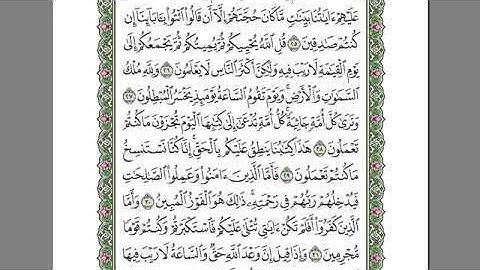 عَلَيْهِمْ ءَايَٰتُنَا بَيِّنَٰتٍ مَّا كَانَ حُجَّتَهُمْ إِلَّآ أَن قَالُوا۟ ٱئْتُوا۟ بِـَٔابَآئِنَآ إِن
كُنتُمْ صَٰدِقِينَ ٢٥ قُلِ ٱللَّهُ يُحْيِيكُمْ ثُمَّ يُمِيتُكُمْ ثُمَّ يَجْمَعُكُمْ إِلَىٰ
يَوْمِ ٱلْقِيَٰمَةِ لَا رَيْبَ فِيهِ وَلَٰكِنَّ أَكْثَرَ ٱلنَّاسِ لَا يَعْلَمُونَ ٢٦ وَلِلَّهِ مُلْكُ
ٱلسَّمَٰوَٰتِ وَٱلْأَرْضِ ۚ وَيَوْمَ تَقُومُ ٱلسَّاعَةُ يَوْمَئِذٍ يَخْسَرُ ٱلْمُبْطِلُونَ ٢٧
وَتَرَىٰ كُلَّ أُمَّةٍ جَاثِيَةً ۚ كُلُّ أُمَّةٍ تُدْعَىٰٓ إِلَىٰ كِتَٰبِهَا ٱلْيَوْمَ تُجْزَوْنَ مَا كُنتُمْ
تَعْمَلُونَ ٢٨ هَٰذَا كِتَٰبُنَا يَنطِقُ عَلَيْكُم بِٱلْحَقِّ ۚ إِنَّا كُنَّا نَسْتَنسِخُ
مَا كُنتُمْ تَعْمَلُونَ ٢٩ فَأَمَّا ٱلَّذِينَ ءَامَنُوا۟ وَعَمِلُوا۟ ٱلصَّٰلِحَٰتِ
فَيُدْخِلُهُمْ رَبُّهُمْ فِى رَحْمَتِهِۦ ۚ ذَٰلِكَ هُوَ ٱلْفَوْزُ ٱلْمُبِينُ ٣٠ وَأَمَّا
ٱلَّذِينَ كَفَرُوٓا۟ أَفَلَمْ تَكُنْ ءَايَٰتِى تُتْلَىٰ عَلَيْكُمْ فَٱسْتَكْبَرْتُمْ وَكُنتُمْ قَوْمًا
مُّجْرِمِينَ ٣١ وَإِذَا قِيلَ إِنَّ وَعْدَ ٱللَّهِ حَقٌّ وَٱلسَّاعَةُ لَا رَيْبَ فِيهَا